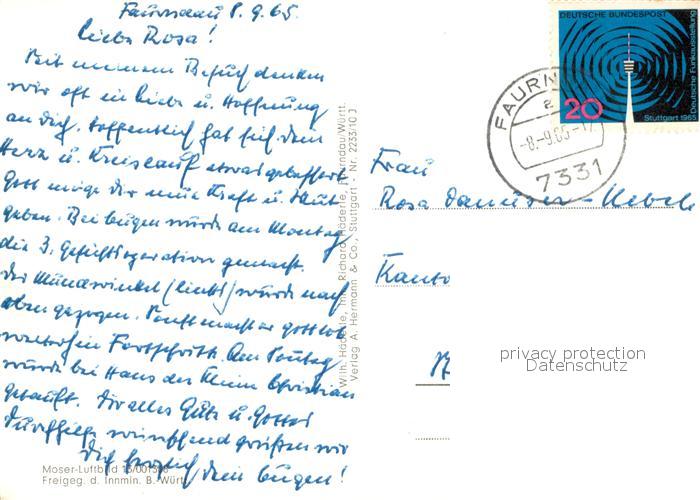 Faurndau 8.9.65.
Liebe Rosa!
Seit meinem Besuch denken
wir oft in Liebe u. Hoffnung
an dich. Hoffentlich hat sich dein
Herz u. Kreislauf etwas gebessert
Gott möge dir neue Kraft u. Mut
geben. Bei Eugen wurde am Montag
die 3. Gesichtsoperation gemacht.
Der Mundwinkel (links) wurde nach
oben gezogen. Sonst macht er gottlob
weiterhin Fortschritte. Am Sonntag
wurde bei Hans der kleine Christian
getauft. Dir alles Gute u. Gottes
Durchhilfe wünschend grüßen wir
dich herzlich dein Eugen!
Moser-Luftbild
Freigeg. d. Innmin. B.-Württ.
Wilh. Häderle, Inh. Richard Häderle, Faurndau/Württ.
Verlag A. Hermann & Co., Stuttgart - Nr. 2233/10 J
DEUTSCHE BUNDESPOST
Deutsche Funkausstellung
Stuttgart 1965
20
FAURN
a
-8.-9.65-17
7331
Frau
Rosa
Kanto
privacy protection
Datenschutz